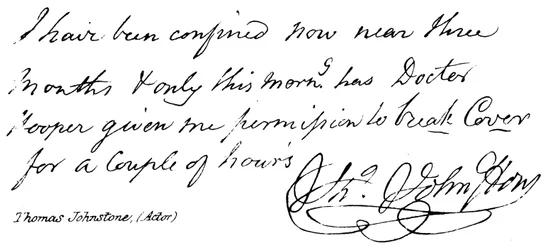 I have been confined now near three
Months & only this morng. has Doctor
Hooper given me permission to break Cover
for a Couple of hours
Tho. Johnston
Thomas Johnstone, (Actor)